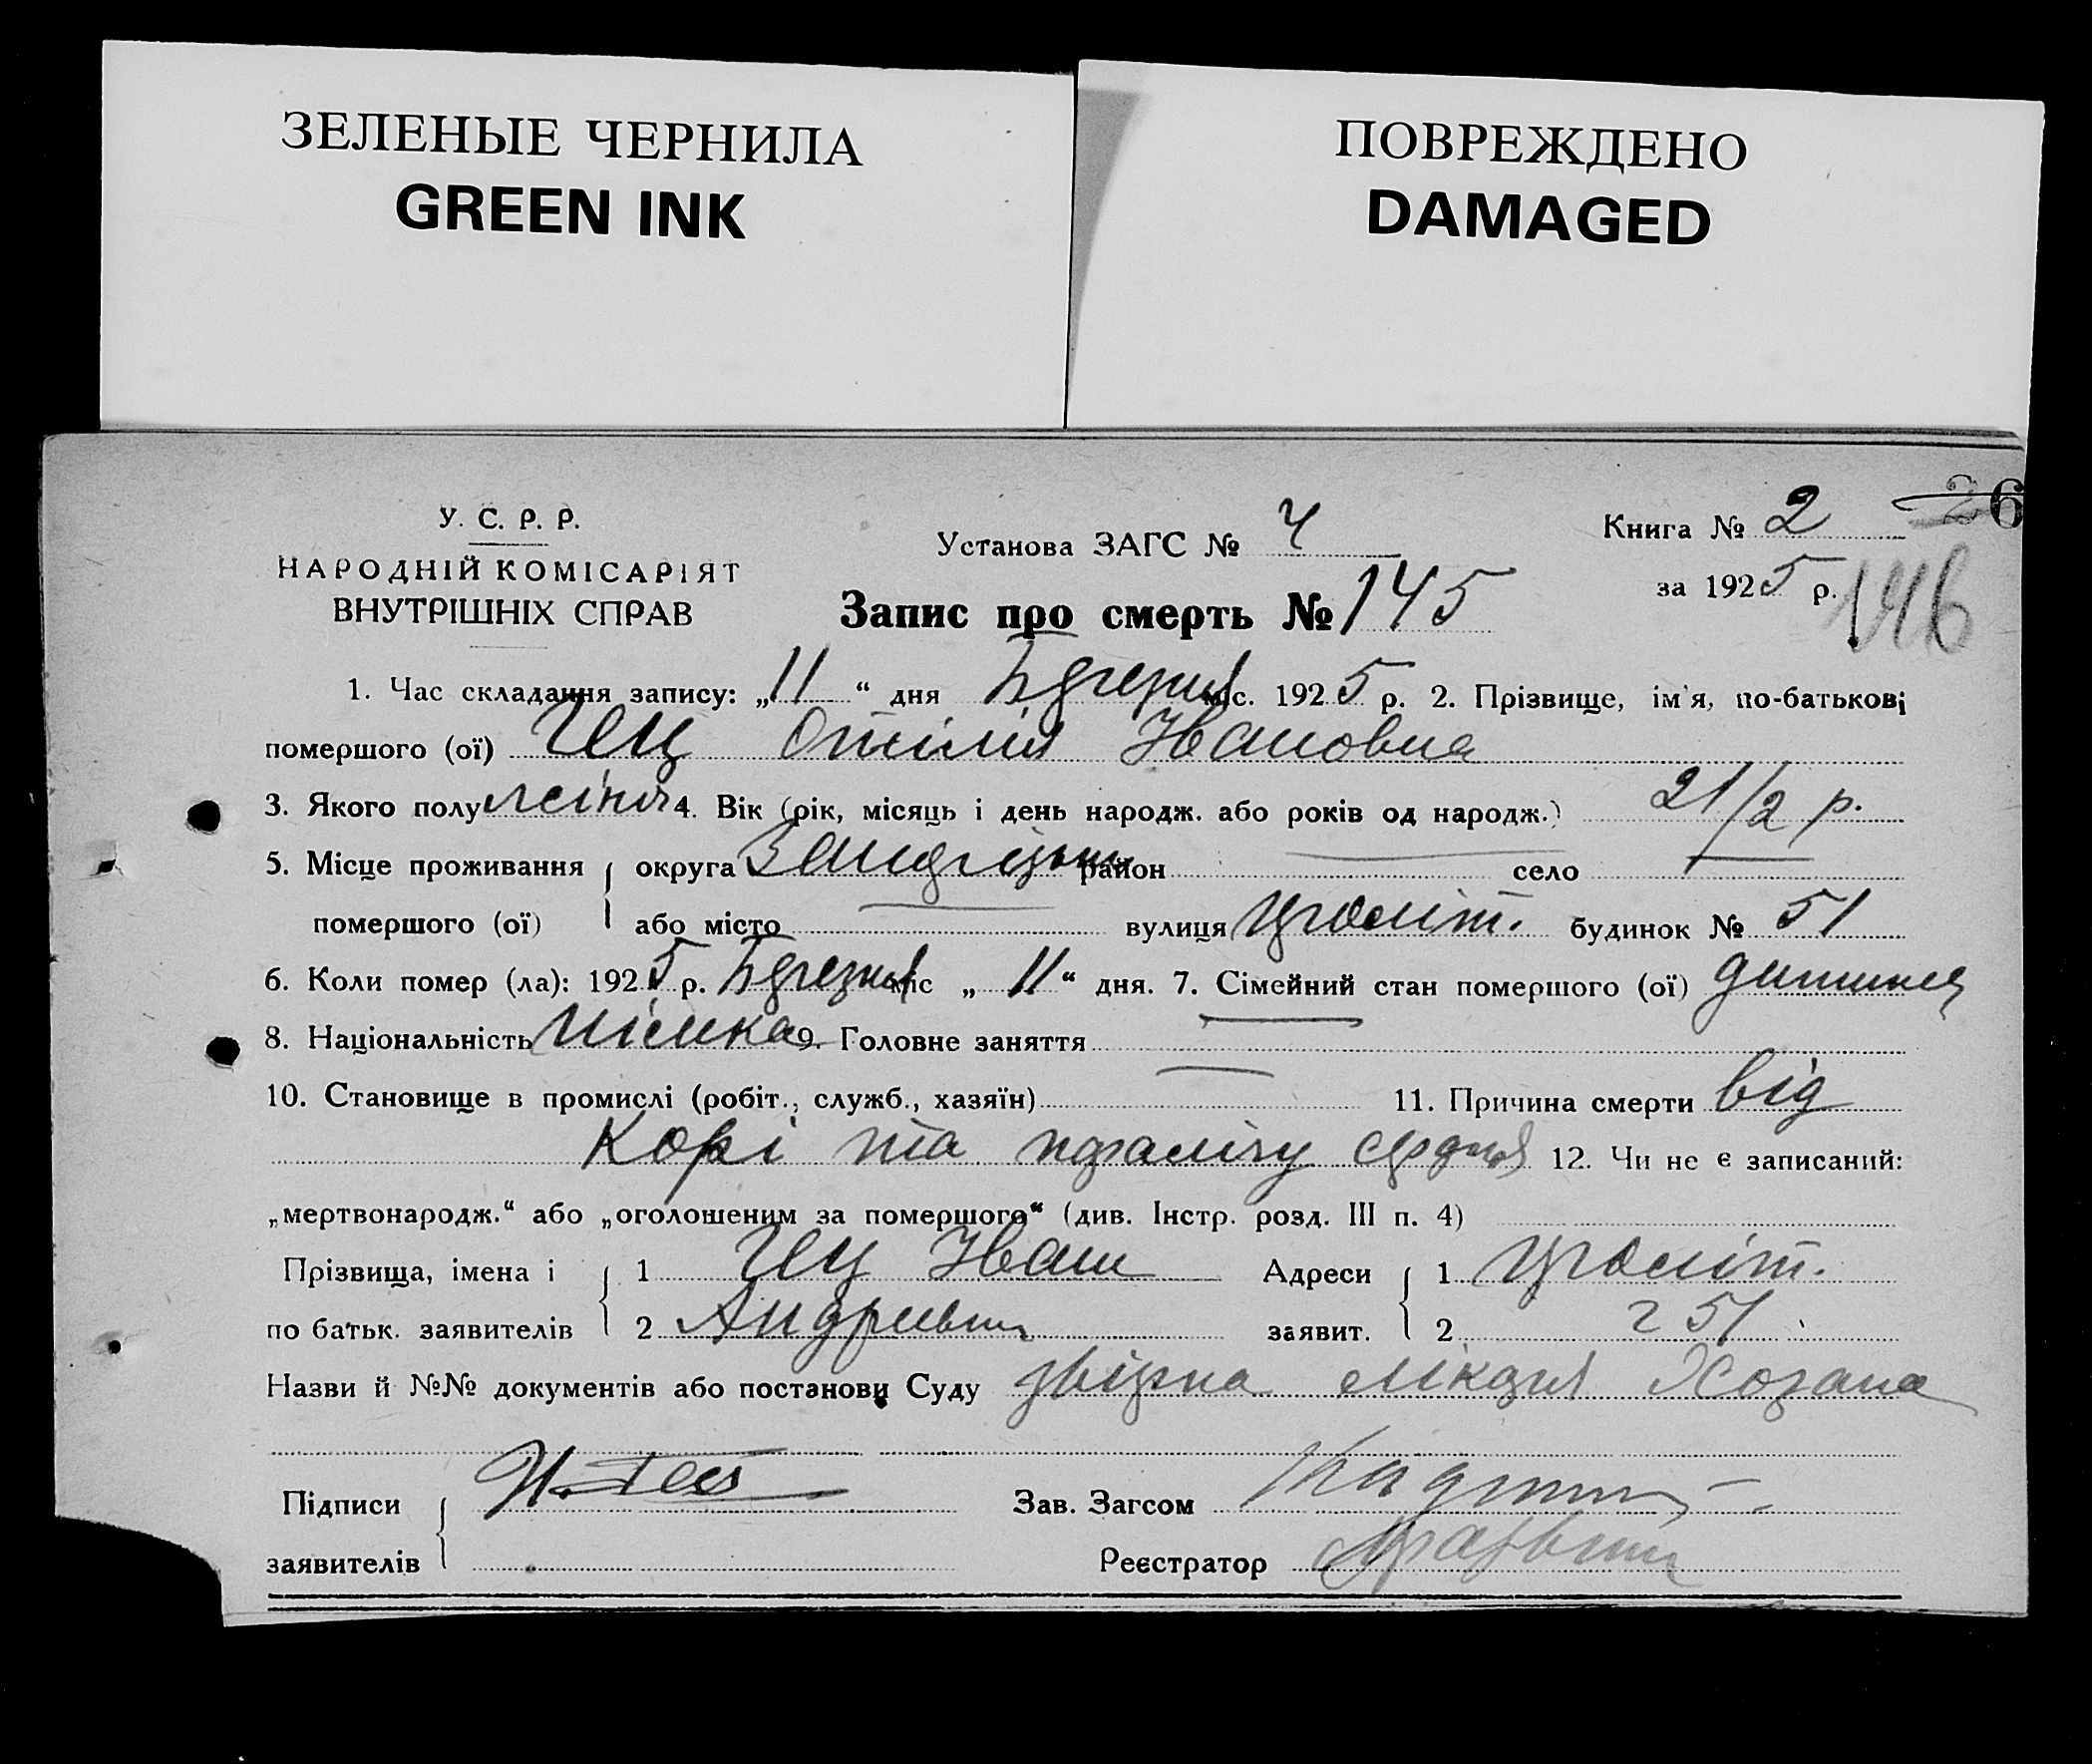 ЗЕЛЕНЫЕ ЧЕРНИЛА
GREEN INK
ПОВРЕЖДЕНО
DAMAGED
У. С. Р. Р.
НАРОДНІЙ КОМІСАРІЯТ
ВНУТРІШНІХ СПРАВ
Установа ЗАГС № 4
Запис про смерть № 145
Книга № 2 26
за 1925 р. 146
1. Час складання запису: „11“ дня Березня міс. 1925 р. 2. Прізвище, ім'я, по-батькові
помершого (ої) Отілія Івановна
3. Якого полу жіноч 4. Вік (рік, місяць і день народж. або років од народж.) 2 1/2 р.
5. Місце проживання округа район село
помершого (ої) або місто вулиця будинок № 51
6. Коли помер (ла): 1925 р. Березня міс „11“ дня. 7. Сімейний стан помершого (ої) дитина
8. Національність німка 9. Головне заняття
10. Становище в промислі (робіт., служб., хазяїн) 11. Причина смерти від
Корі та параліču сердця 12. Чи не є записаний:
„мертвонародж.“ або „оголошеним за помершого“ (див. Інстр. розд. III п. 4)
Прізвища, імена і 1 Іван Адреси 1
по батьк. заявителів 2 Андреевич заявит. 2 51
Назви й №№ документів або постанови Суду лікаря
Підписи Зав. Загсом
заявителів Реєстратор